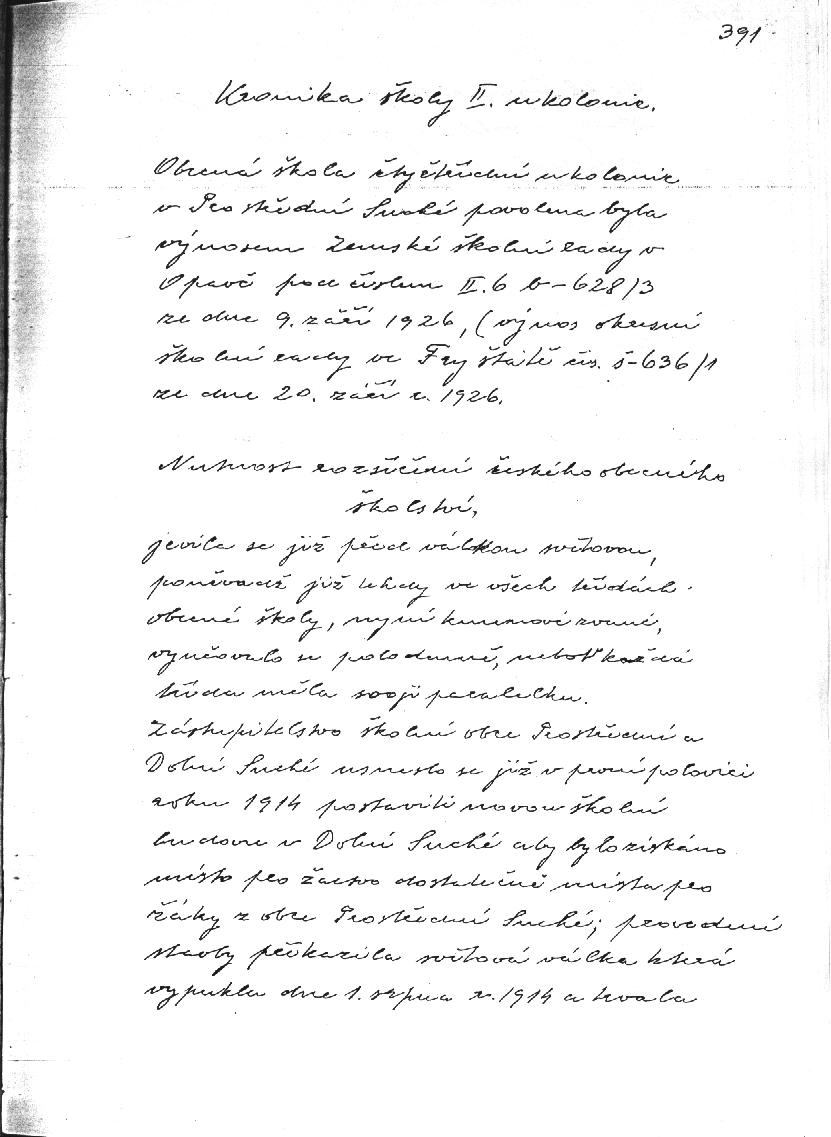 391
Kronika školy II. u kolonie.
Obecná škola čtyřtřídní u kolonie
v Prostřední Suché povolena byla
výnosem Zemské školní rady v
Opavě pod číslem II. 6 b-628/3
ze dne 9. září 1926, (výnos okresní
školní rady ve Fryštátě čís. š-636/1
ze dne 20. září r. 1926.
Nutnost rozšíření českého obecného
školství,
jevila se již před válkou světovou,
poněvadž již tehdy ve všech třídách
obecné školy, nyní kmenové zvané,
vyučovalo se polodenně, neboť každá
třída měla svoji paralelku.
Zastupitelstvo školní obce Prostřední a
Dolní Suché usneslo se již v první polovici
roku 1914 postaviti novou školní
budovu v Dolní Suché aby bylo získáno
místo pro žactvo dostatečně místa pro
žáky z obce Prostřední Suché; provedení
stavby překazila světová válka která
vypukla dne 1. srpna r. 1914 a trvala